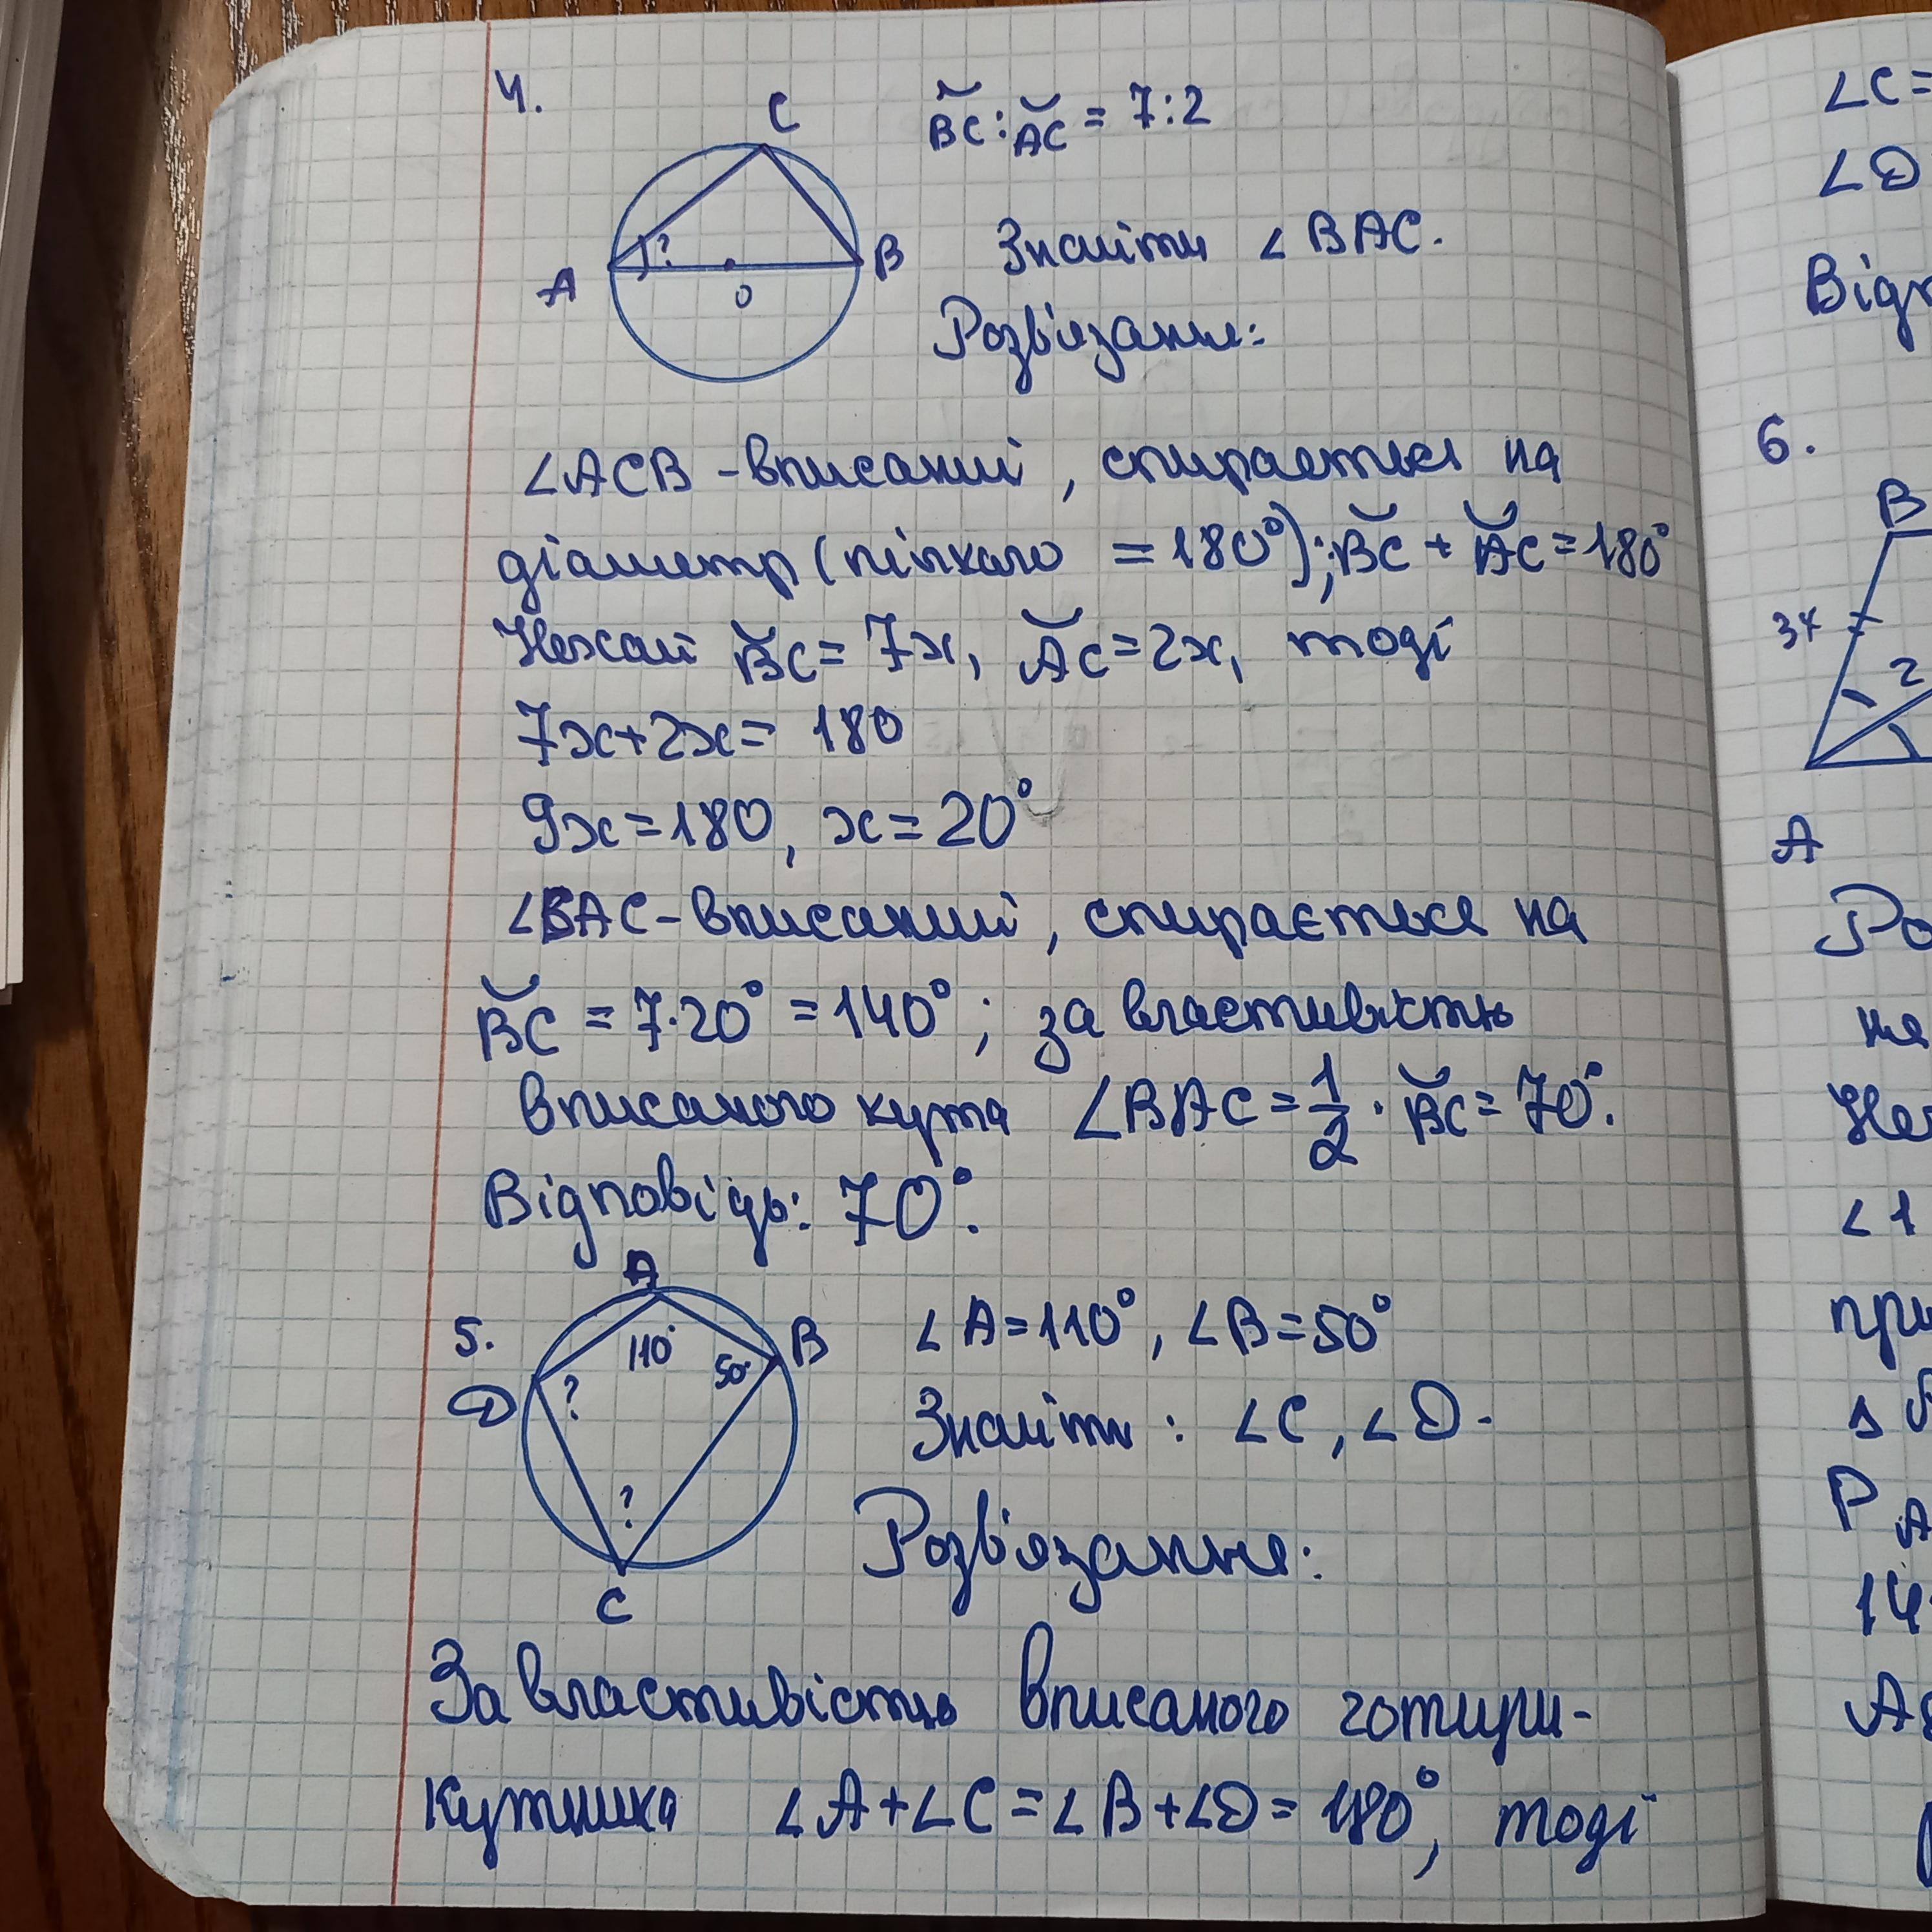 4.
C
A
B
O
?
BC : AC = 7:2
Знайти ∠BAC.
Розв'язання:
∠ACB - вписаний, спирається на
діаметр (півколо = 180°); BC + AC = 180°
Нехай BC = 7x, AC = 2x, тоді
7x+2x= 180
9x=180, x=20°
∠BAC - вписаний, спирається на
BC = 7·20° = 140°; за властивістю
вписаного кута ∠BAC = 1/2 · BC = 70°.
Відповідь: 70°.
5.
A
B
D
C
110°
50°
?
?
∠A=110°, ∠B=50°
Знайти: ∠C, ∠D.
Розв'язання:
За властивістю вписаного чотири-
кутника ∠A+∠C=∠B+∠D=180°, тоді
∠C=
∠D
6.
B
3x
2
A
∠1
P